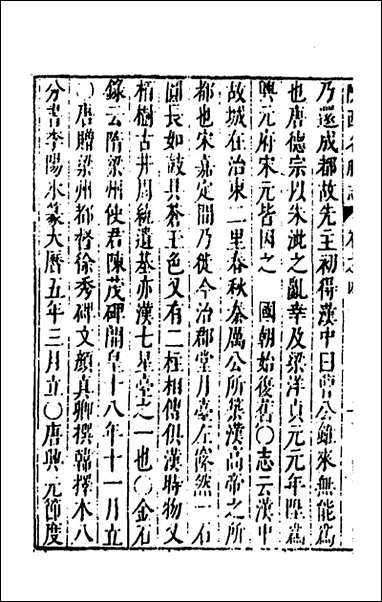 陝西名勝志 卷之四
乃還成都故先主初得漢中曰曹公雖來無能為
也唐德宗以朱泚之亂幸及梁洋貞元元年陞為
興元府宋元皆因之　國朝始復舊〇志云漢中
故城在治東一里春秋秦厲公所築漢高帝之所
都也宋嘉定間乃徙今治郡堂月臺左傍然一石
圓長如鼓其蒼玉色又有二柱相傳俱漢時物又
栢樹古井周繞遺基亦漢七星臺之一也〇金石
錄云隋梁州使君陳茂碑開皇十八年十一月立
〇唐贈梁州都督徐秀碑文顏真卿撰韓擇木八
分書李陽冰篆大曆五年三月立〇唐興元節度